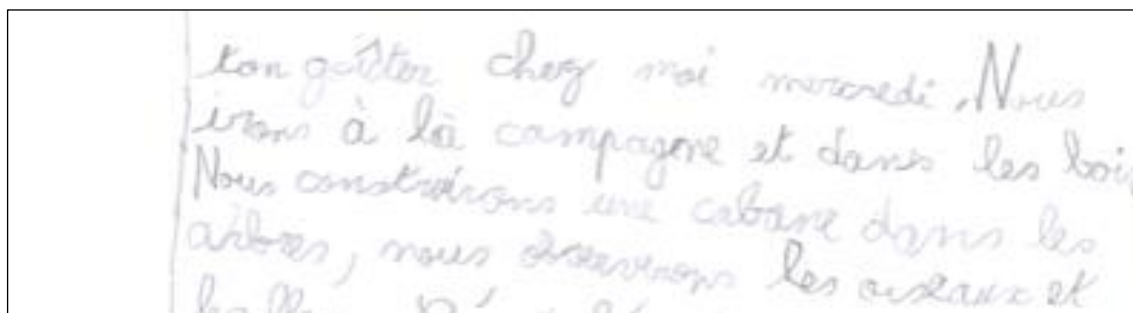 ton goûter chez moi mercredi. Nous
irons à là campagne et dans les bois
Nous construirons une cabane dans les
arbres, nous observerons les oiseaux et